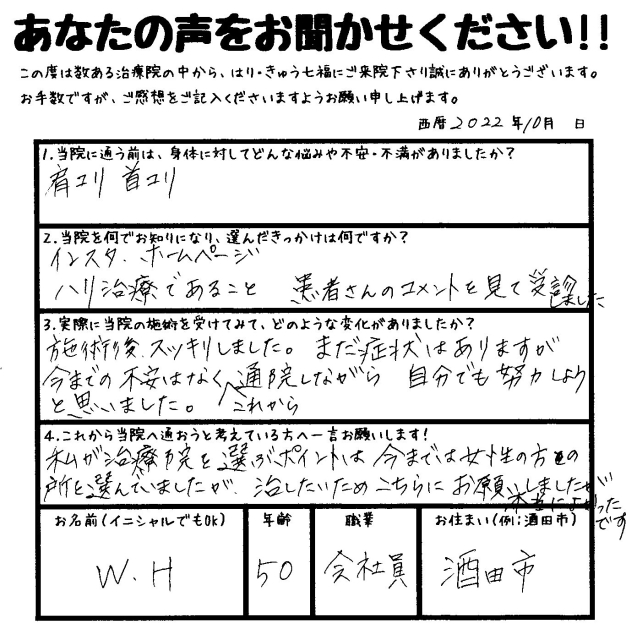 あなたの声をお聞かせください!!
この度は数ある治療院の中から、はり・きゅう七福にご来院下さり誠にありがとうございます。
お手数ですが、ご感想をご記入くださいますようお願い申し上げます。
西暦2022年10月 日
1.当院に通う前は、身体に対してどんな悩みや不安・不満がありましたか?
肩コリ 首コリ
2.当院を何でお知りになり、選んだきっかけは何ですか?
インスタ.ホームページ
ハリ治療であること 患者さんのコメントを見て受診しました
3.実際に当院の施術を受けてみて、どのような変化がありましたか?
施術後、スッキリしました。まだ症状はありますが
今までの不安はなく通院しながら 自分でも努力しよう
と思いました。 これから
4.これから当院へ通おうと考えている方へ一言お願いします!
私が治療院を選ぶポイントは今までは女性の方の
所を選んでいましたが、治したいためこちらにお願いしましたが
本当によかった
です
お名前(イニシャルでもOK) 年齢 職業 お住まい(例;酒田市)
W.H 50 会社員 酒田市